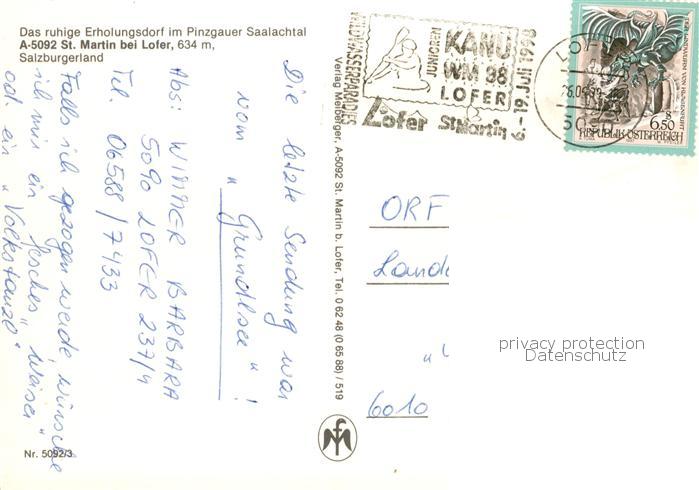 Das ruhige Erholungsdorf im Pinzgauer Saalachtal
A-5092 St. Martin bei Lofer, 634 m,
Salzburgerland
Die letzte Sendung war
vom "Grundlsee"!
Abs: WIMMER BARBARA
5090 LOFER 237/4
Tel. 06588/7433
Falls ich gezogen werde wünsche
ich mir ein fesches "Weisen"
od. ein "Volkstanzl".
Nr. 5092/3
Verlag Melberger, A-5092 St. Martin b. Lofer, Tel. 0 62 48 (0 65 88) / 519
WILDWASSERPARADIES
JUNIOREN
KANU
WM 98
LOFER
Lofer St.Martin
-19. JULI 1998
LOFER
REPUBLIK ÖSTERREICH
S 6.50
ORF
Lande
6010
privacy protection
Datenschutz